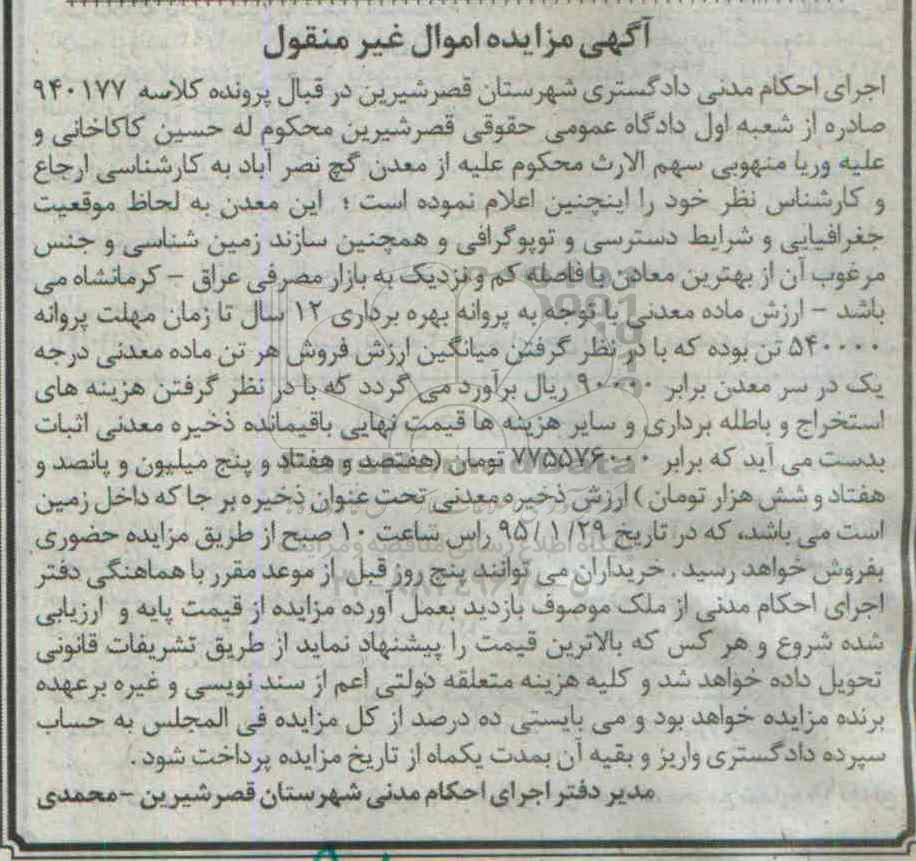 آگهی مزایده اموال غیر منقول
اجرای احکام مدنی دادگستری شهرستان قصرشیرین در قبال پرونده کلاسه ۹۴۰۱۷۷
صادره از شعبه اول دادگاه عمومی حقوقی قصرشیرین محکوم له حسین کاکاخانی و
علیه وریا منهوبی سهم الارث محکوم علیه از معدن گچ نصر آباد به کارشناسی ارجاع
و کارشناس نظر خود را اینچنین اعلام نموده است ؛ این معدن به لحاظ موقعیت
جغرافیایی و شرایط دسترسی و توپوگرافی و همچنین سازند زمین شناسی و جنس
مرغوب آن از بهترین معادن با فاصله کم و نزدیک به بازار مصرفی عراق - کرمانشاه می
باشد - ارزش ماده معدنی با توجه به پروانه بهره برداری ۱۲ سال تا زمان مهلت پروانه
۵۴۰۰۰۰ تن بوده که با در نظر گرفتن میانگین ارزش فروش هر تن ماده معدنی درجه
یک در سر معدن برابر ۹۰۰۰۰ ریال برآورد می گردد که با در نظر گرفتن هزینه های
استخراج و باطله برداری و سایر هزینه ها قیمت نهایی باقیمانده ذخیره معدنی اثبات
بدست می آید که برابر ۷۷۵۵۷۶۰۰۰ تومان (هفتصد و هفتاد و پنج میلیون و پانصد و
هفتاد و شش هزار تومان) ارزش ذخیره معدنی تحت عنوان ذخیره بر جا که داخل زمین
است می باشد، که در تاریخ ۹۵/۱/۲۹ راس ساعت ۱۰ صبح از طریق مزایده حضوری
بفروش خواهد رسید . خریداران می توانند پنج روز قبل از موعد مقرر با هماهنگی دفتر
اجرای احکام مدنی از ملک موصوف بازدید بعمل آورده مزایده از قیمت پایه و ارزیابی
شده شروع و هر کس که بالاترین قیمت را پیشنهاد نماید از طریق تشریفات قانونی
تحویل داده خواهد شد و کلیه هزینه متعلقه دولتی اعم از سند نویسی و غیره برعهده
برنده مزایده خواهد بود و می بایستی ده درصد از کل مزایده فی المجلس به حساب
سپرده دادگستری واریز و بقیه آن بمدت یکماه از تاریخ مزایده پرداخت شود .
مدیر دفتر اجرای احکام مدنی شهرستان قصرشیرین -محمدی